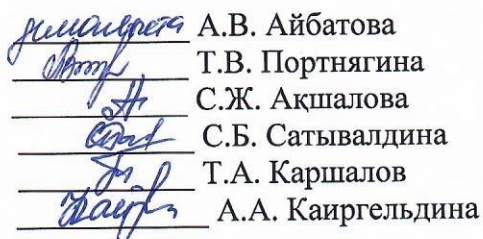 А.В. Айбатова
Т.В. Портнягина
С.Ж. Ақшалова
С.Б. Сатывалдина
Т.А. Каршалов
А.А. Каиргельдина